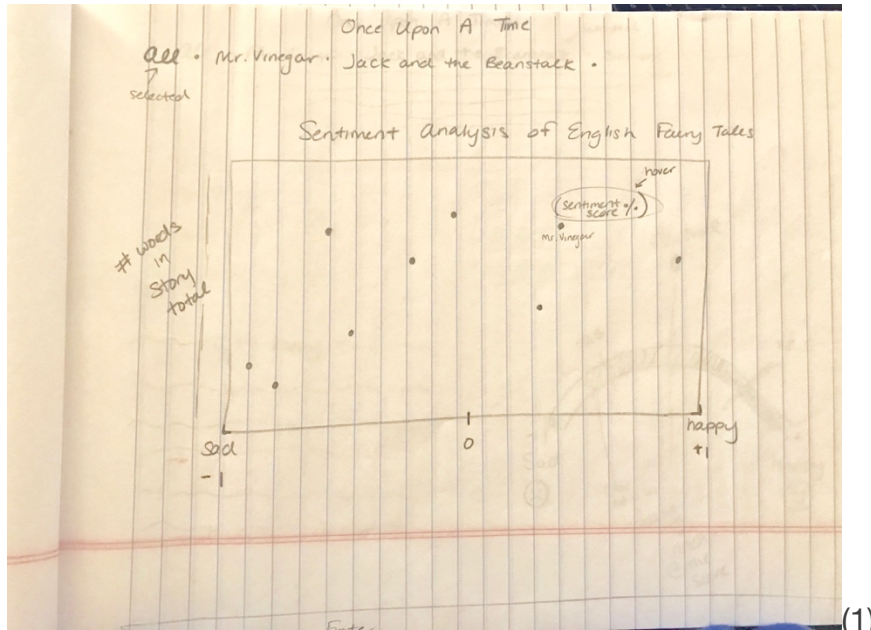 Once Upon A Time
all • Mr. Vinegar • Jack and the Beanstalk •
selected
Sentiment Analysis of English Fairy Tales
hover
(sentiment score %)
Mr. Vinegar
# words
in
story
total
sad
0
happy
-1
+1
(1)